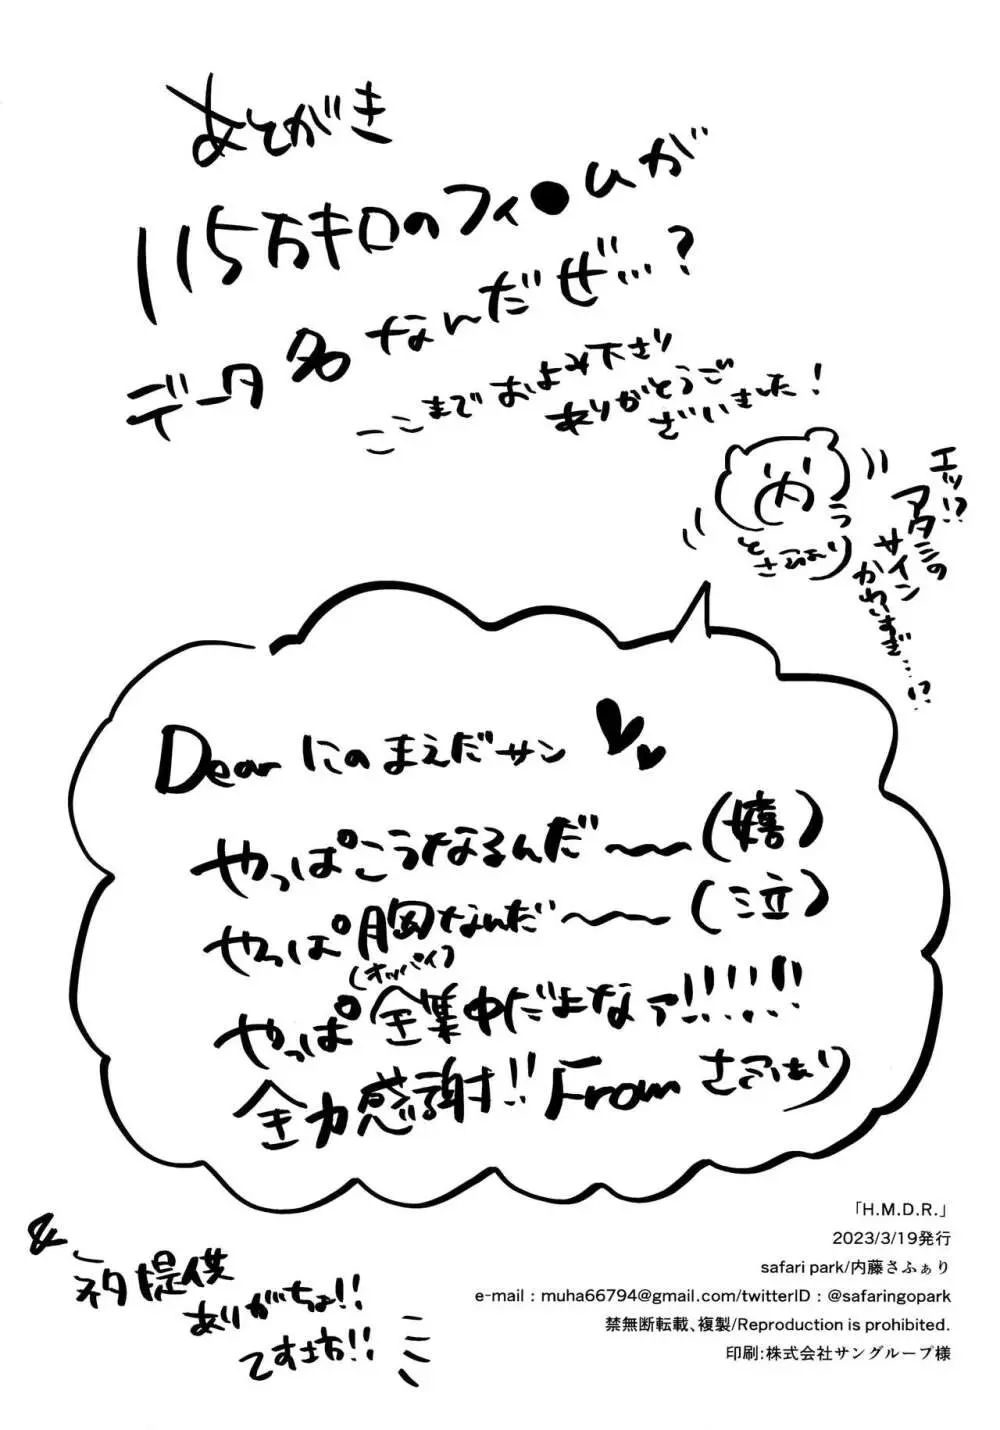 あとがき
115万キロのフィ●ムが
データ名なんだぜ…?
ここまでおよみ下さり
ありがとうご
ざいました!
エッ!?
アタシの
サイン
かわいすぎ…!?
さふぁり
Dear にのまえだサン
やっぱこうなるんだ〜〜(嬉)
やっぱ胸なんだ〜〜(泣)
(オッパイ)
やっぱ全集中だよなァ!!!!!
全力感謝!! From さふぁり
&
ネタ提供
ありがちょ!!
てす坊!!
「H.M.D.R.」
2023/3/19発行
safari park/内藤さふぁり
e-mail : muha66794@gmail.com/twitterID : @safaringopark
禁無断転載、複製/Reproduction is prohibited.
印刷:株式会社サングループ様